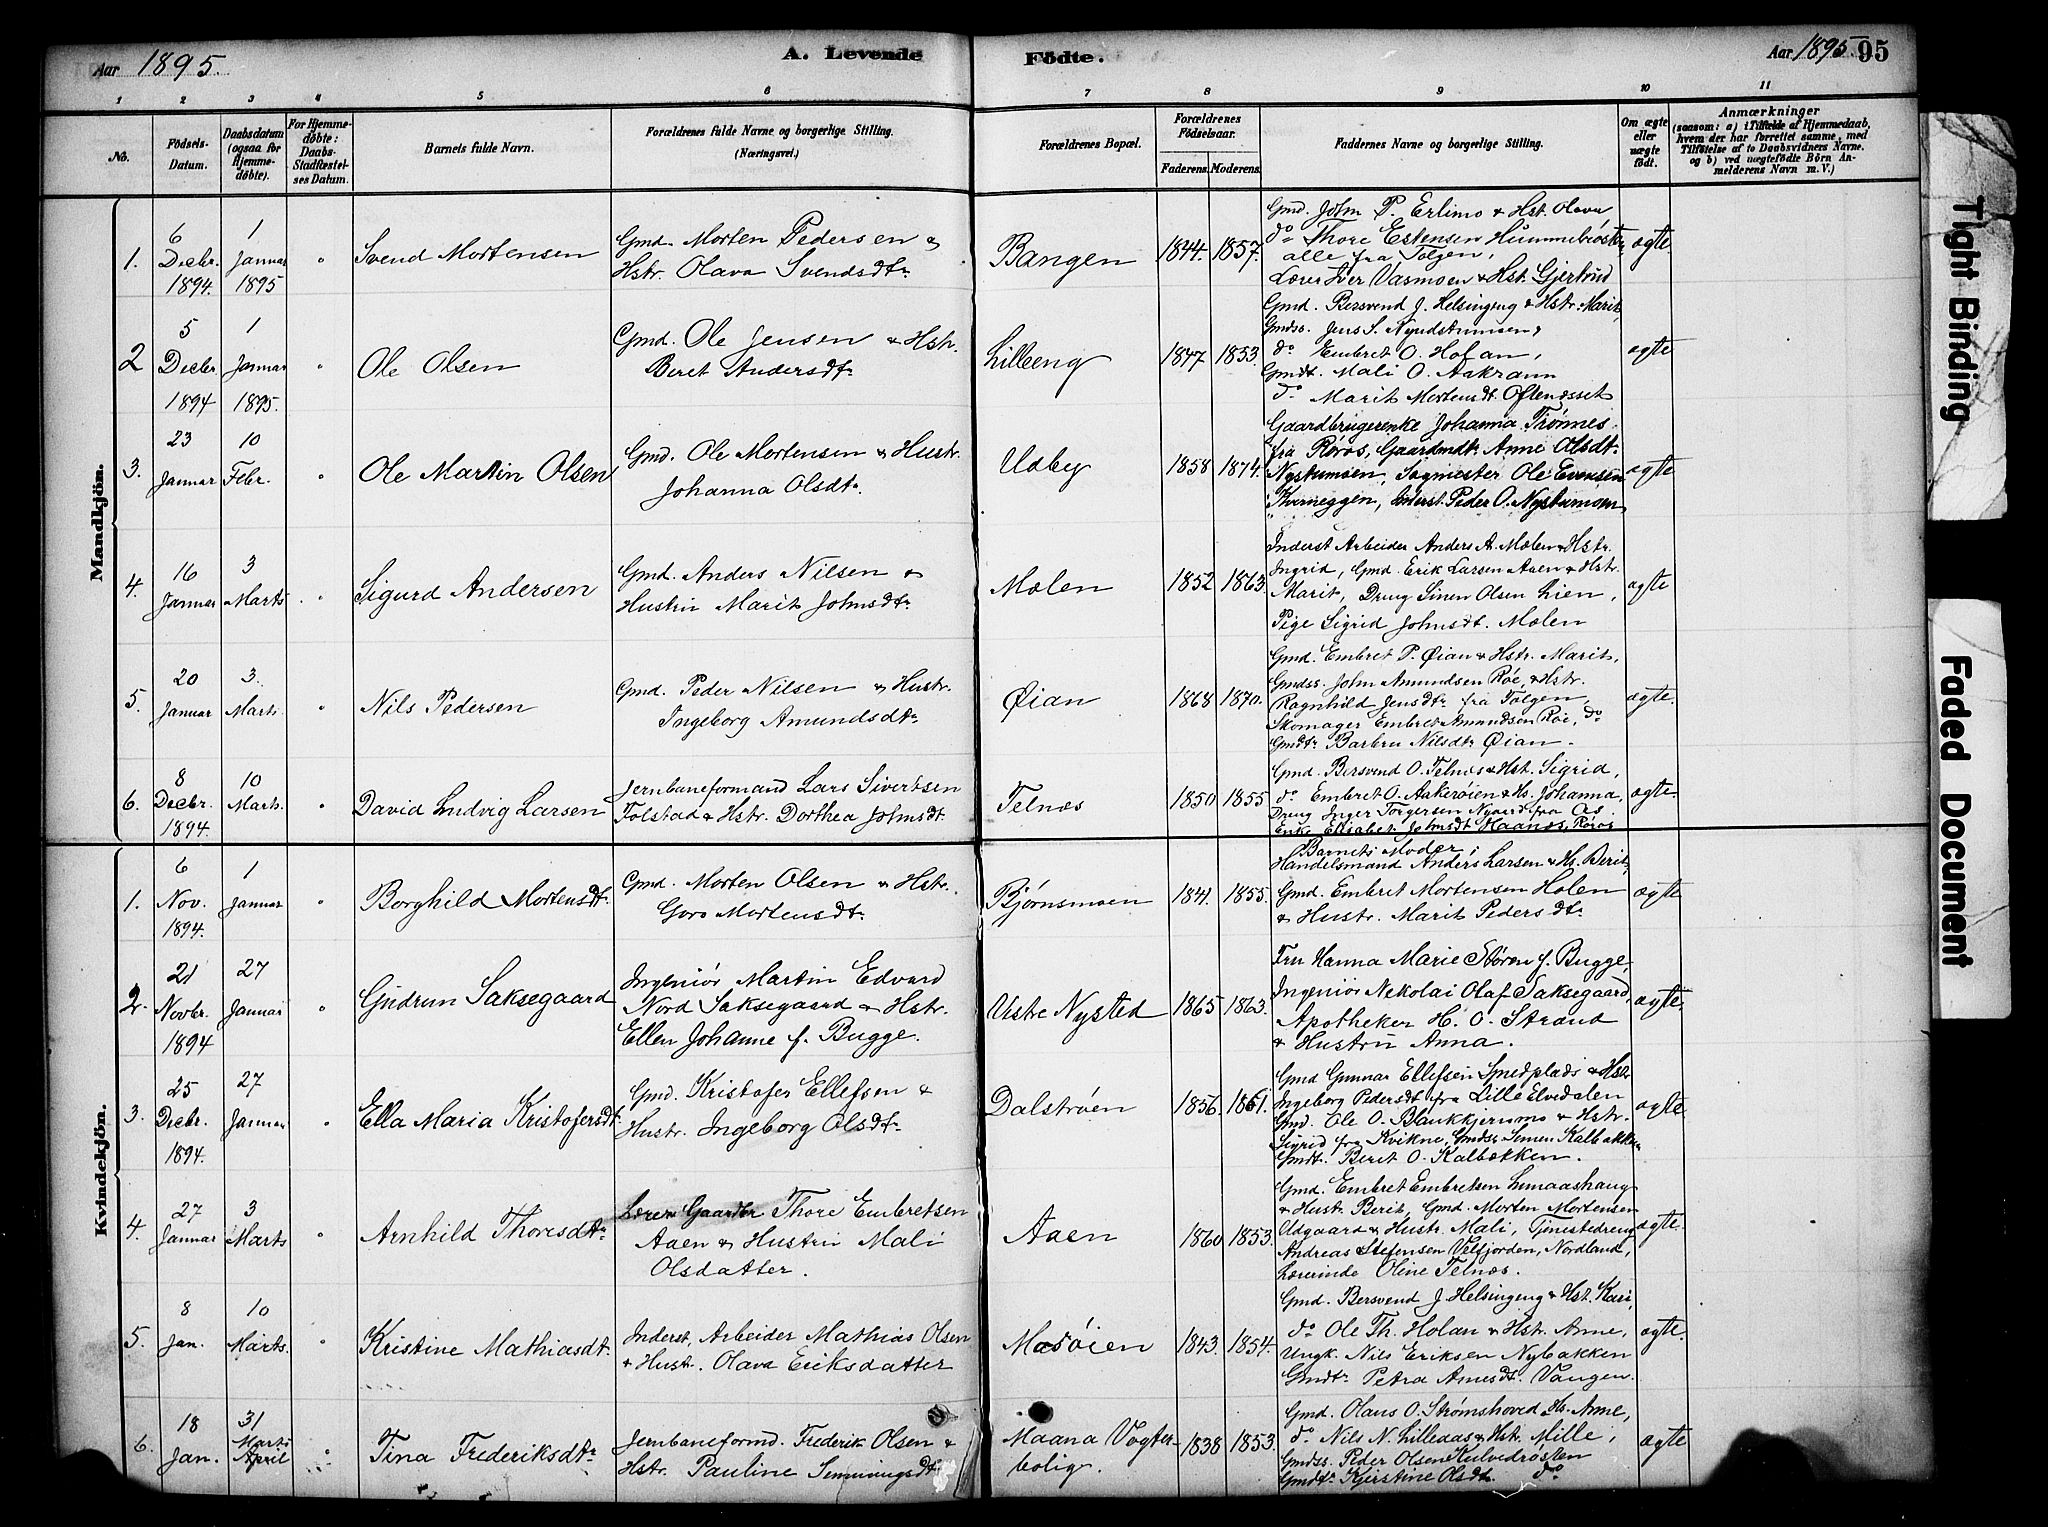 Aar 1895.
A. Levende Födte.
Aar 1895 95
1 2 3 4 5 6 7 8 9 10 11
No.
Födsels-Datum.
Daabsdatum (ogsaa for Hjemmedöbte).
For Hjemmedöbte: Daabs-Stadfæstelses Datum.
Barnets fulde Navn.
Forældrenes fulde Navne og borgerlige Stilling. (Næringsvei.)
Forældrenes Bopæl.
Forældrenes Födselsaar.
Faderens. Moderens.
Faddernes Navne og borgerlige Stilling.
Om ægte eller uægte födt.
Anmærkninger
(saasom: a) i Tilfælde af Hjemmedaab, hvem der har forrettet samme, med Tilföielse af to Daabsvidners Navne. og b) ved uægtefödte Börn Anmelderens Navn m. V.)
Mandkjön.
1. 6 Decbr. 1894. 1 Januar 1895 " Svend Mortensen
Gmd. Morten Pedersen &
Hstr. Olava Svendsdtr.
Bangen 1844. 1857.
Gmd. John P. Erlimo & Hst. Olava
do Thore Estensen Hummelrøsten,
alle fra Tolgen,
Lærer Iver Vasmoen & Hst. Gjertrud
ægte.
2 5 Decbr. 1894 1 Januar 1895. " Ole Olsen
Gmd. Ole Jensen & Hstr.
Beret Andersdtr.
Lilleeng 1847 1853.
Gmd. Bersvend J. Helsingeng & Hstr. Marit,
Gmdss. Jens S.
do Embret O. Hofan,
Gmdt. Mali O. Aakrann
do Marit Mortensdt.
ægte
3. 23 Januar 10 Febr. " Ole Martin Olsen
Gmd. Ole Mortensen & Hustr.
Johanna Olsdtr.
Udby 1858 1874.
Gaardbrugerenke Johanna Trønnes
fra Røros, Gaardmdtr. Anne Olsdt.
Nystumoen, Sagmester Ole Evensen
Kverneggen, Inderst Peder O. Nystumoen
ægte
4. 16 Januar 3 Marts " Sigurd Andersen
Gmd. Anders Nilsen &
Hustru Marit Johnsdtr.
Molen 1852 1863.
Inderst Arbeider Anders A. Molen & Hstr.
Ingrid, Gmd. Erik Larsen Aaen & Hstr.
Marit, Dreng Simen Olsen Lien,
Pige Sigrid Johnsdt. Molen
ægte
5. 20 Januar 3. Marts. " Nils Pedersen
Gmd. Peder Nilsen & Hustr.
Ingeborg Amundsdtr.
Øian 1868 1870.
Gmd. Embret P. Øian & Hstr. Marit,
Gmdss. John Amundsen Røe, & Hstr.
Ragnhild Jensdtr. fra Tolgen,
Skomager Embret Amundsen Røe, do
Gmdtr. Barbru Nilsdtr. Øian.
ægte.
6. 8 Decbr. 1894. 10 Marts. " David Ludvig Larsen
Jernbaneformand Lars Sivertsen
Tolstad & Hstr. Dorthea Johnsdt.
Telnæs 1850 1855
Gmd. Bersvend O. Telnæs & Hst. Sigrid,
do Embret O. Aakerøien & Hs. Johanna,
Dreng Inger Torgersen Nygaard fra Aas
Enke Elisabet Johnsdt Haanes, Røros
ægte.
Kvindekjön.
1. 6 Nov. 1894. 1 Januar " Borghild Mortensdt.
Gmd. Morten Olsen & Hstr.
Goro Mortensdtr.
Bjørnsmoen 1841. 1855.
Barnets Moder,
Handelsmand Anders Larsen & Hs. Berit,
Gmd. Embret Mortensen Holen
& Hustr. Marit Pedersdtr.
ægte
2. 21 Novbr. 1894 27 Januar " Gudrun Saksegaard
Ingeniør Martin Edvard
Nord Saksegaard & Hstr.
Ellen Johanne f. Bugge.
Vestre Nysted 1865 1863.
Fru Hanna Marie Støren f. Bugge,
Ingeniør Nekolai Olaf Saksegaard,
Apotheker H. O. Strand
& Hustru Anna.
ægte.
3. 25 Decbr. 1894. 27 Januar " Ella Maria Kristofersdt.
Gmd. Kristofer Ellefsen &
Hustr. Ingeborg Olsdtr.
Dalstrøen 1856 1861.
Gmd Gunnar Ellefsen Smedplads & Hstr
Ingeborg Pedersdt fra Lille Elvedalen
Gmd. Ole O. & Hstr.
Sigrid fra Kvikne, Gmdss Simen Kalbækken
Gmdt. Beret O. Kalbækken.
ægte
4. 27 Januar 3 Marts " Arnhild Thoresdtr.
Lærer & Gaardbr Thore Embretsen
Aaen & Hustru Mali
Olsdatter.
Aaen 1860 1853.
Gmd. Embret Embretsen Lunaashaug
& Hustr. Berit, Gmd. Morten Mortensen
Udgaard & Hustr. Mali, Tjenestedreng
Andreas Stefensen Velfjorden, Nordland,
Lærerinde Oline Telnæs.
ægte.
5. 8 Jan. 10 Marts. " Kristine Mathiasdt.
Inderst, Arbeider Mathias Olsen
& Hustr. Olava Eriksdatter
Mosøien 1843. 1854.
Gmd. Bersvend J Helsingeng & Hst. Kari,
do Ole Th. Holan & Hstr. Anne,
Ungk. Nils Eriksen Nybakken
Gmdtr. Petra Arnesdt. Vangen.
ægte.
6. 18 Jan. 31 Marts April " Tina Frederiksdtr.
Jernbaneformd. Frederik Olsen &
Hstr. Pauline
Maana Vogterbolig. 1838 1853.
Gmd. Olaus O. Strømshoved & Hs. Anne,
do Nils N. Lilleaas & Hstr. Mille,
Gmdss. Peder Olsen Kulvedrøsten
Gmdtr. Kjerstine Olsdt. do
ægte
Tight Binding
Faded Document